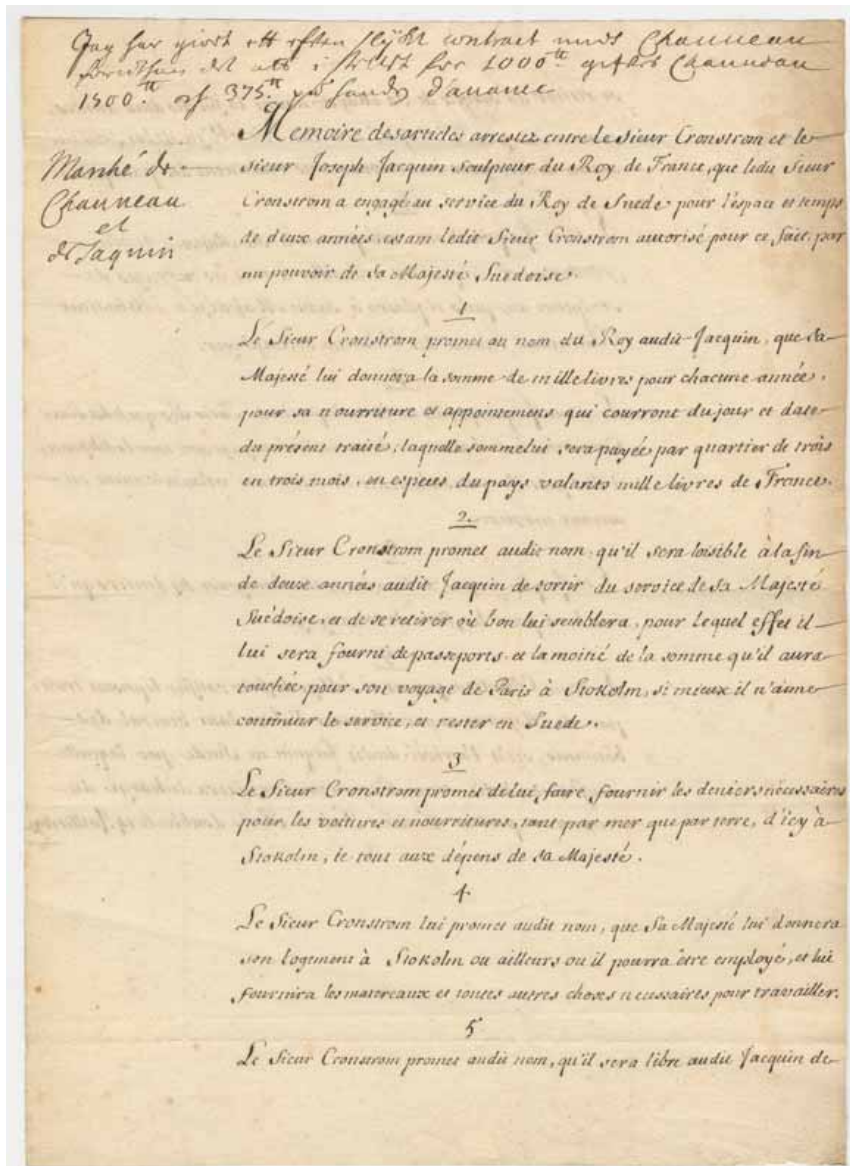 Jag har giort ett efften slijkt contract med Chauveau
föruthan det att i stelle for 1000.tt giftes Chauveau
1500.tt och 375.tt på hand d'avance
Marché de
Chauveau
et
de Jaquin
Memoire des articles arrestez entre le Sieur Cronstrom et le
sieur Joseph Jacquin Sculpteur du Roy de France, que ledit Sieur
Cronstrom a engagé au service du Roy de Suede pour l'espace et temps
de deux années, estant ledit Sieur Cronstrom autorisé pour ce fait par
un pouvoir de sa Majesté Suedoise.
1
Le Sieur Cronstrom promet au nom du Roy audit Jacquin, que sa
Majesté lui donnera la somme de mille livres pour chacune année,
pour sa nourriture et appointemens qui courront du jour et date
du présent traité, laquelle somme lui sera payée par quartier de trois
en trois mois, en especes du pays valants mille livres de France.
2.
Le Sieur Cronstrom promet audit nom qu'il sera loisible à la fin
de deux années audit Jacquin de sortir du service de sa Majesté
Suédoise, et de se retirer où bon lui semblera, pour lequel effet il
lui sera fourni de passeports et la moitié de la somme qu'il aura
touchée pour son voyage de Paris à Stokolm, si mieux il n'aime
continuer le service, et rester en Suede.
3
Le Sieur Cronstrom promet de lui faire fournir les deniers nécessaires
pour les voitures et nourritures, tant par mer que par terre, d'icy à
Stokolm, le tout aux dépens de sa Majesté.
4
Le Sieur Cronstrom lui promet audit nom, que Sa Majesté lui donnera
son logement à Stokolm ou ailleurs ou il pourra être employé, et lui
fournira les matereaux et toutes autres choses necessaires pour travailler.
5
Le Sieur Cronstrom promet audit nom, qu'il sera libre audit Jacquin de